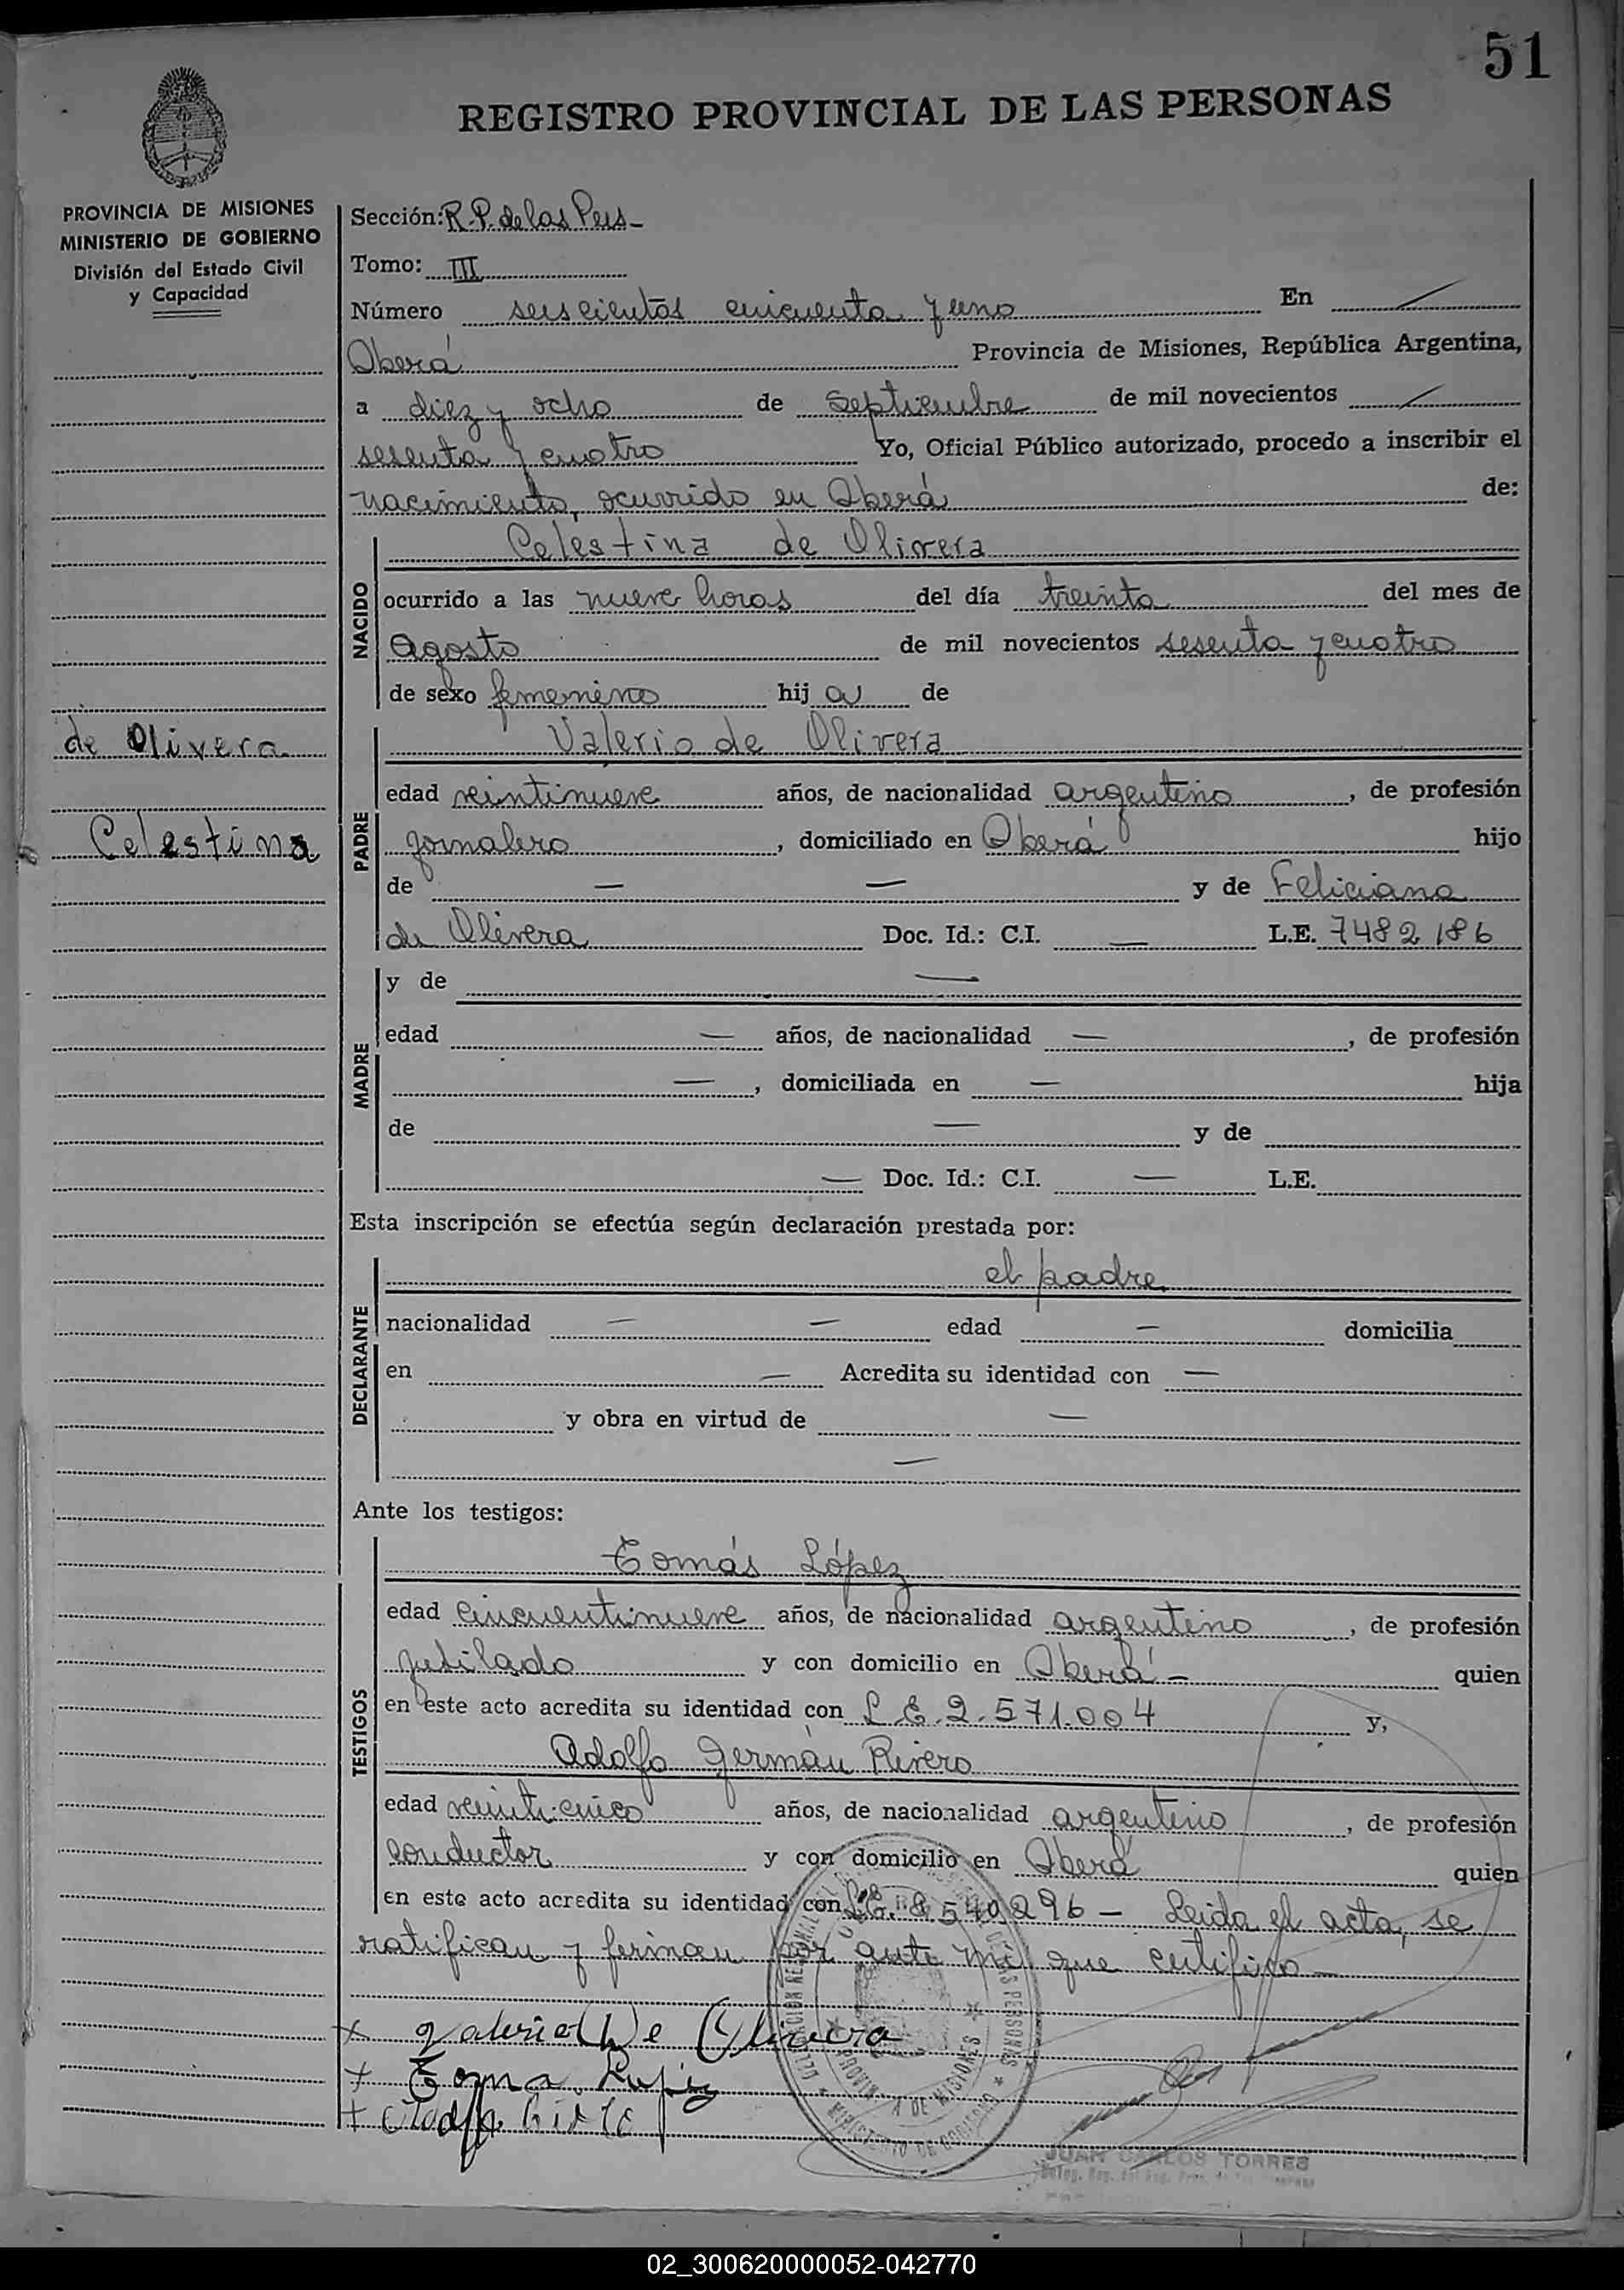 51
REGISTRO PROVINCIAL DE LAS PERSONAS
PROVINCIA DE MISIONES
MINISTERIO DE GOBIERNO
División del Estado Civil
y Capacidad
Sección: R.P. de las Pers-
Tomo: III
Número seiscientos cincuenta y uno En
Oberá Provincia de Misiones, República Argentina,
a diez y ocho de Septiembre de mil novecientos
sesenta y cuatro Yo, Oficial Público autorizado, procedo a inscribir el
nacimiento, ocurrido en Oberá de:
NACIDO
Celestina de Olivera
ocurrido a las nueve horas del día treinta del mes de
Agosto de mil novecientos sesenta y cuatro
de sexo femenino hij a de
de Olivera
Celestina
PADRE
Valerio de Olivera
edad veintinueve años, de nacionalidad argentino, de profesión
jornalero, domiciliado en Oberá hijo
de — — y de Feliciana
de Olivera Doc. Id.: C.I. — L.E. 7482186
MADRE
y de —
edad — años, de nacionalidad —, de profesión
—, domiciliada en — hija
de — y de
— Doc. Id.: C.I. — L.E.
Esta inscripción se efectúa según declaración prestada por:
DECLARANTE
el padre
nacionalidad — — edad — domicilia
en — Acredita su identidad con —
y obra en virtud de —
—
Ante los testigos:
TESTIGOS
Tomás López
edad cincuentinueve años, de nacionalidad argentino, de profesión
jubilado y con domicilio en Oberá - quien
en este acto acredita su identidad con L.E. 2.571.004 y,
Adolfo Germán Rivero
edad veinticinco años, de nacionalidad argentino, de profesión
conductor y con domicilio en Oberá quien
en este acto acredita su identidad con L.E. 8.540296 - Leida el acta, se
ratifican y firman por ante mí que certifico
x Valerio De Olivera
+ Toma
+
DELEGACION REGIONAL PERSONAS
PROVINCIA DE MISIONES
MINISTERIO DE GOBIERNO
JUAN CARLOS TORRES
02_300620000052-042770